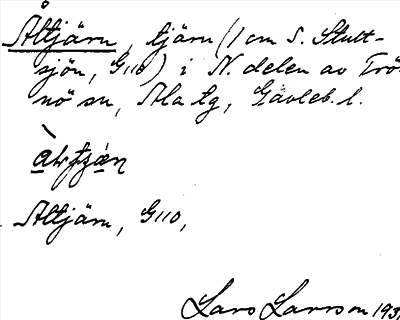 Åltjärn, tjärn (1 cm S. Stutt-
sjön, G110) i N. delen av Trö-
nö sn, Ala tg, Gävleb. l.
Åltjärn, G110,
Lars Larsson 193